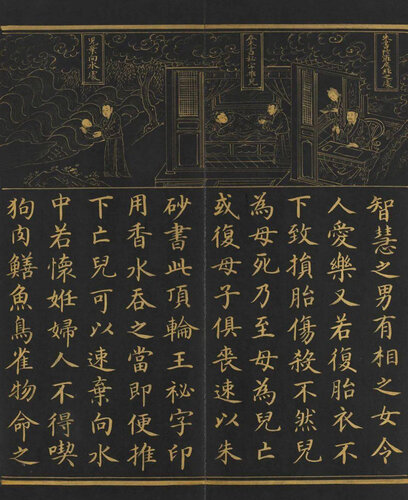 兒棄向水處
智慧之男有相之女令
人愛樂又若復胎衣不
下致損胎傷殺不然兒
為母死乃至母為兒亡
或復母子俱喪速以朱
砂書此頂輪王祕字印
用香水吞之當即便推
下亡兒可以速棄向水
中若懷姙婦人不得喫
狗肉鱔魚鳥雀物命之